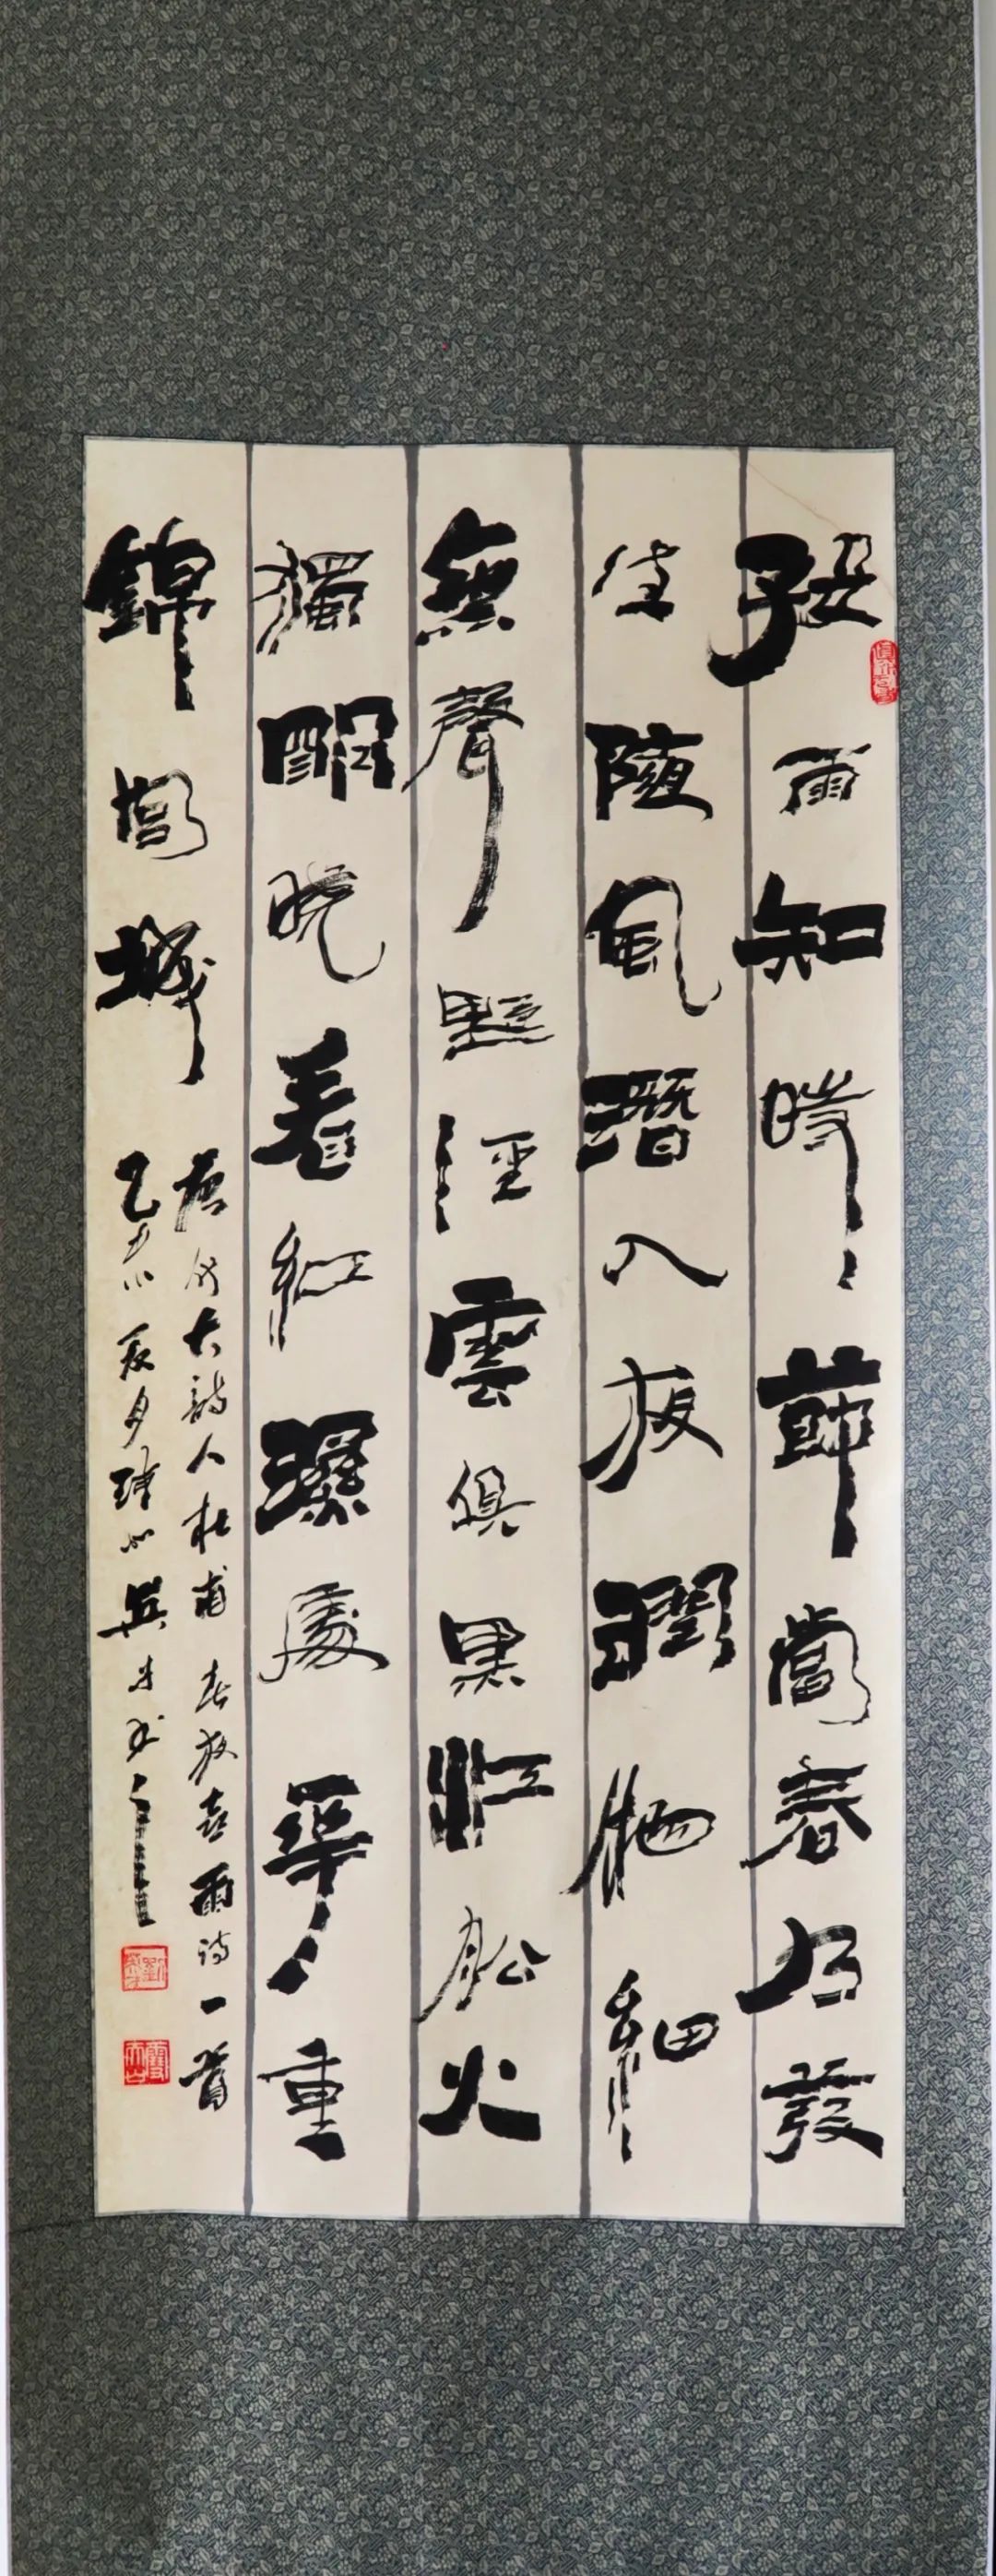 好雨知時節當春乃發
生隨風潛入夜潤物細
無聲野徑雲俱黑江船火
獨明曉看紅濕處華重
錦官城
唐代大詩人杜甫春夜喜雨詩一首
乙夏夕吳書